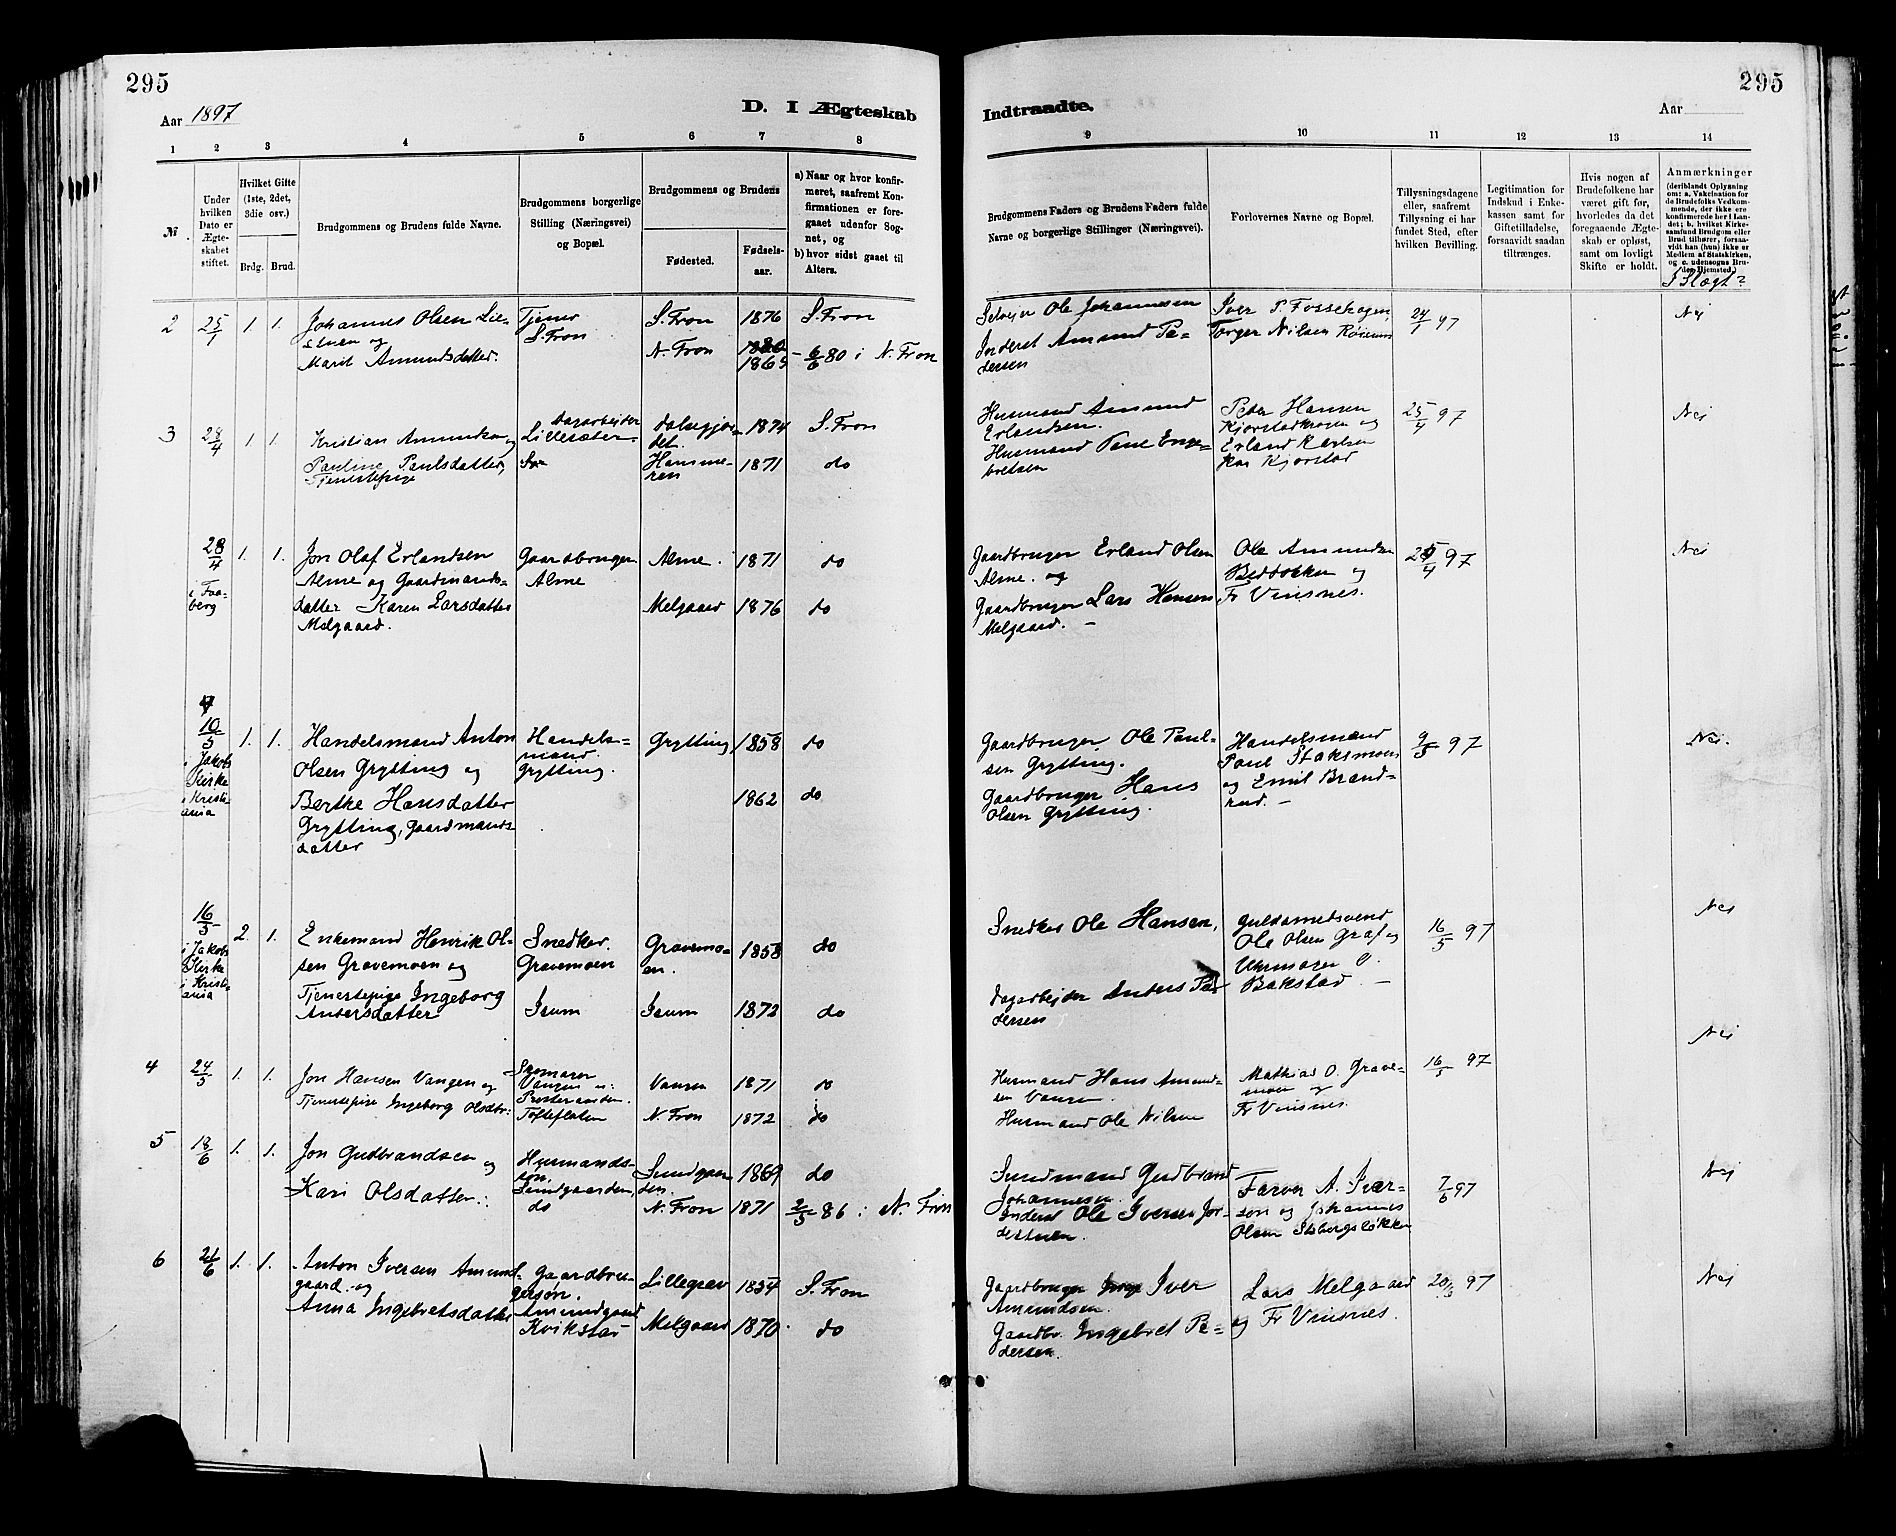 295
295
Aar 1897
D. I Ægteskab
Indtraadte.
Aar
1 2 3 4 5 6 7 8
9 10 11 12 13 14
№
Under hvilken Dato er Ægteskabet stiftet.
Hvilket Gifte (1ste, 2det, 3die osv.)
Brdg. Brud.
Brudgommens og Brudens fulde Navne.
Brudgommens borgerlige Stilling (Næringsvei) og Bopæl.
Brudgommens og Brudens
Fødested. Fødselsaar.
a) Naar og hvor konfirmeret, saafremt Konfirmationen er foregaaet udenfor Sognet, og
b) hvor sidst gaaet til Alters.
Brudgommens Faders og Brudens Faders fulde Navne og borgerlige Stillinger (Næringsvei).
Forlovernes Navne og Bopæl.
Tillysningsdagene eller, saafremt Tillysning ei har fundet Sted, efter hvilken Bevilling.
Legitimation for Indskud i Enkekassen samt for Giftetilladelse, forsaavidt saadan tiltrænges.
Hvis nogen af Brudefolkene har været gift før, hvorledes da det foregaaende Ægteskab er opløst, samt om lovligt Skifte er holdt.
Anmærkninger
(deriblandt Oplysning om: a. Vakcination for de Brudefolks Vedkommende, der ikke ere konfirmerede her i Landet; b. hvilket Kirkesamfund Brudgom eller Brud tilhører, forsaavidt han (hun) ikke er Medlem af Statskirken, og c. udensogns Brudes Hjemsted.)
I Slægt?
2 25/1 1. 1. Johannes Olsen Lie-
stuen og
Marit Amundsdatter.
Tjener
S. Fron
S. Fron 1876 S. Fron
N. Fron 1880 1865 - 6/6 80 i N. Fron
Selveier Ole Johannesen
Inderst Amund Pe-
dersen
Iver P. Fossehagen
Torger Nilsen
24/1 97
Nei
3 28/4 1. 1. Kristian Amundsen og
Pauline Paulsdatter,
Tjenestepige
Dagarbejder
Lillesæter
1874 S. Fron
Hamme-
ren 1871 do
Husmand Amund
Erlandsen.
Husmand Paul Enge-
bretsen
Peder Hansen
Kjorstadhagen og
Erland Karlsen
Kjorstad
25/4 97
Nei
28/4
i Faa-
berg
1. 1. Jon Olaf Erlandsen
Alme og Gaardmands-
datter Karen Larsdatter
Melgaard.
Gaardbruger
Alme
Alme 1871 do
Melgaard 1876 do
Gaardbruger Erland Olsen
Alme. og
Gaardbruger Lars Hansen
Melgaard. -
Ole Amundsen
og
Fr Viisnes.
25/4 97
Nei
10/5
i Jakobs
Kirke
i Kristi-
ania
1. 1. Handelsmand Anton
Olsen Grytting og
Berthe Hansdatter
Grytting, Gaardmands-
datter
Handels-
mand.
Grytting.
Grytting 1858 do
1862 do
Gaardbruger Ole Paul-
sen Grytting.
Gaardbruger Hans
Olsen Grytting.
Handelsmand
Paul Staksmoen
og Emil Brand-
rud. -
9/5 97
Nei.
16/5
i Jakobs
Kirke
i Kristi-
ania
2. 1. Enkemand Henrik Ol-
sen Gravemoen og
Tjenestepige Ingeborg
Andersdatter
Snedker.
Gravemoen
Isum
Gravemo-
en. 1858 do
Isum 1872 do
Snedker Ole Hansen,
Dagarbejder Anders Pe-
dersen
Guldsmedsvend
Ole Olsen Graf og
Uhrmager O.
Bakstad. -
16/5 97
Nei
4 24/5 1. 1. Jon Hansen Vangen og
Tjenestepige Ingeborg Olsdtr:
Vangen
Tofteflaten
Vangen 1871 do
N. Fron 1872 do
Husmand Hans Amund-
sen Vangen.
Husmand Ole Nilsen
Mathias O. Grave-
moen og
Fr Viisnes.
16/5 97
Nei
5 18/6 1. 1. Jon Gudbrandsen og
Kari Olsdatter.:
Husmands-
søn,
Sundgaarden,
do
Sundgaar-
den. 1869 do
N. Fron 1871 2/5 86 i N. Fron
Sundmand Gudbrand
Johannesen
Inderst Ole Iversen Jor-
destuen.
Farver A. Iver-
sen og Johannes
Olsen
7/6 97
Nei
6 21/6 1. 1. Anton Iversen Amund-
gaard og
Anna Ingebretsdatter
Gaardbru-
gersøn.
Amundgaard
Kvikstad
Lillegrav 1854 S. Fron
Melgaard 1870. do
Gaardbruger Iver
Amundsen.
Gaardbr. Ingebret Pe-
dersen.
Lars Melgaard
og Fr Viisnes.
20/6 97
Nei